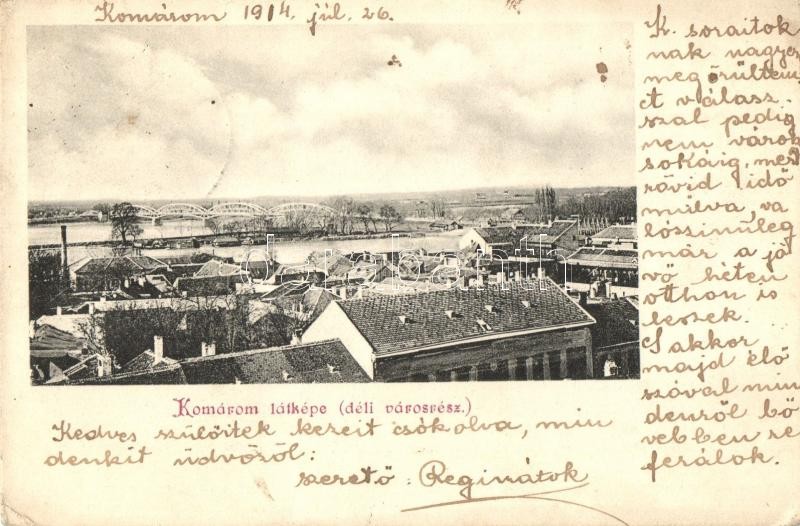 Komárom 1914. júl. 26.
K. soraitok
nak nagyon
megőrültem
ét válasz-
szal pedig
nem várok
sokáig, mert
rövid idő
múlva, va
lószinűleg
már a jö
vő héten
otthon is
leszek.
S akkor
majd élő
szóval min
denről bő
vebben re
ferálok.
Komárom látképe (déli városrész.)
Kedves szülőitek kezeit csókolva, min
denkit üdvözöl:
szerető: Reginátok